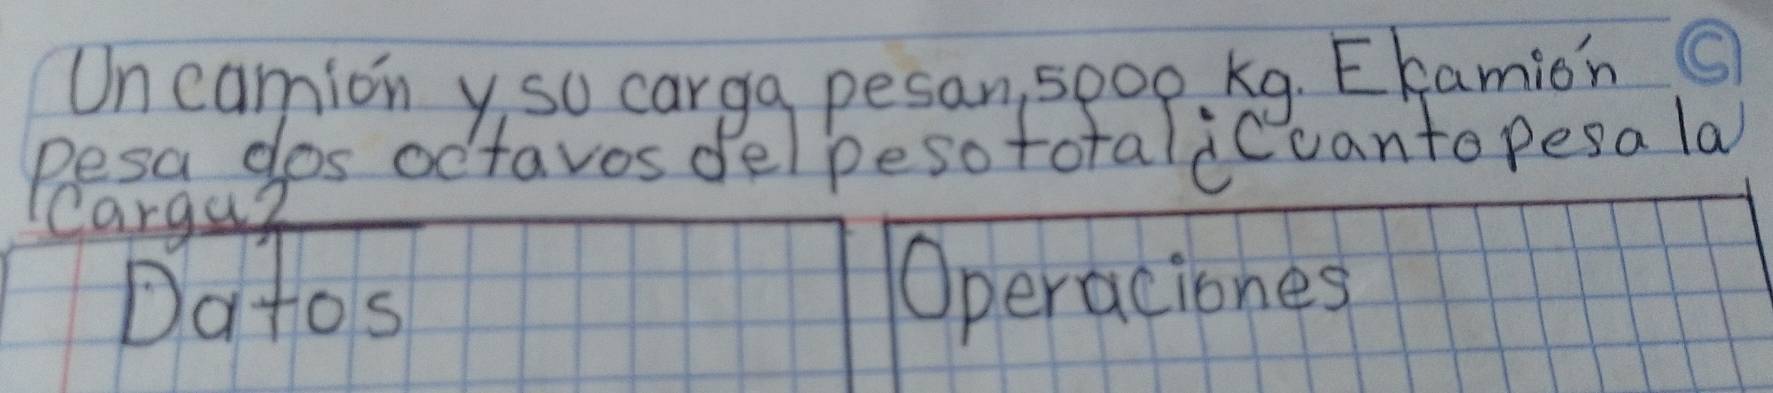 Un camión y su carga pesan, 5000 kg. El camión C
pesa dos octavos del peso total ¿Cuanto pesa la
carga?
Datos
Operaciones